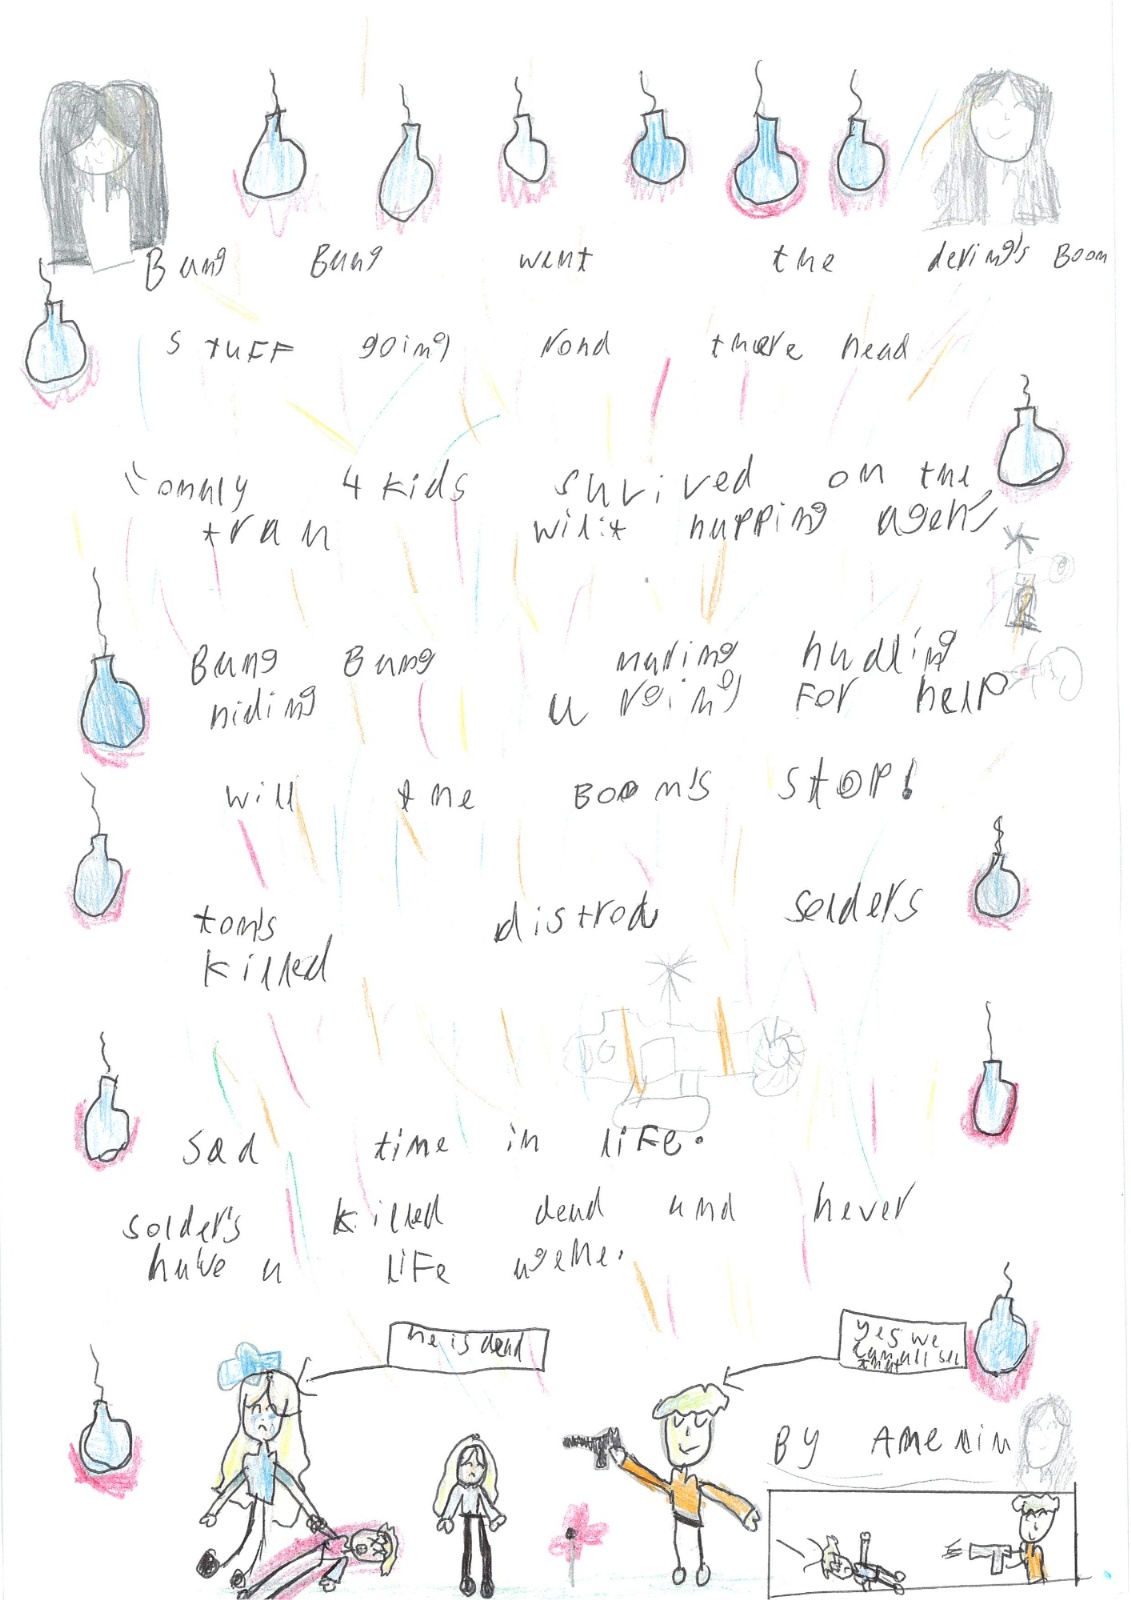 Bang Bang went the dering's Boom
stuff going rond there head
onnly 4 kids survived on the
tran wilit happing agen's
Bang Bang maring hudling
hiding u rging for help
will the Boom's stop!
tom's distrod solders
killed
sad time in life.
solder's killed dead and never
hav'e a life agene.
he is dead
yes we
can all see
that
By Amenin